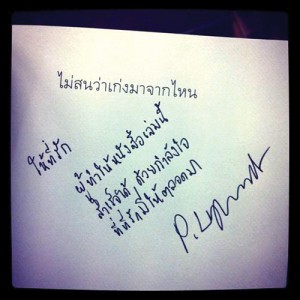 ไม่สนว่าเก่งมาจากไหน
ให้ที่รัก
ผู้ทำให้หนังสือเล่มนี้
สำเร็จได้ ด้วยกำลังใจ
ที่ที่รักมีให้ตลอดมา